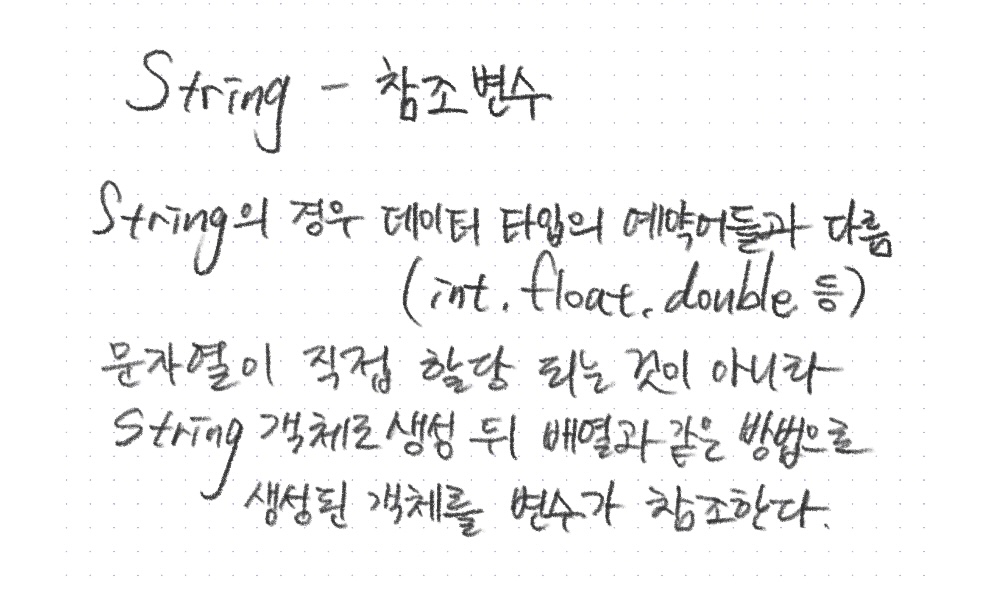 String - 참조변수
String의 경우 데이터 타입의 예약어들과 다름
(int, float, double 등)
문자열이 직접 할당 되는 것이 아니라
String 객체로 생성 뒤 배열과 같은 방법으로
생성된 객체를 변수가 참조한다.